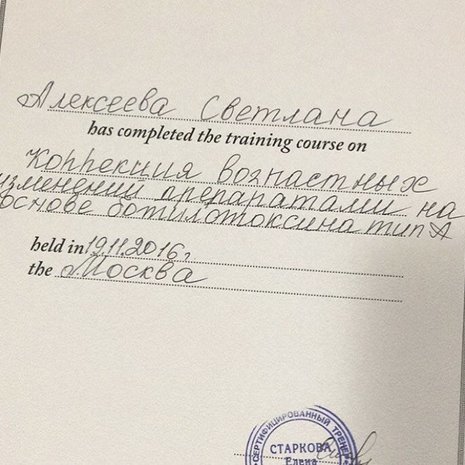 Алексеева Светлана
has completed the training course on
Коррекция вознастных
изменений препаратами на
основе ботилотоксина тип А
held in 19.11.2016г
the Москва
СЕРТИФИЦИРОВАННЫЙ ТРЕНЕР
СТАРКОВА
Елена